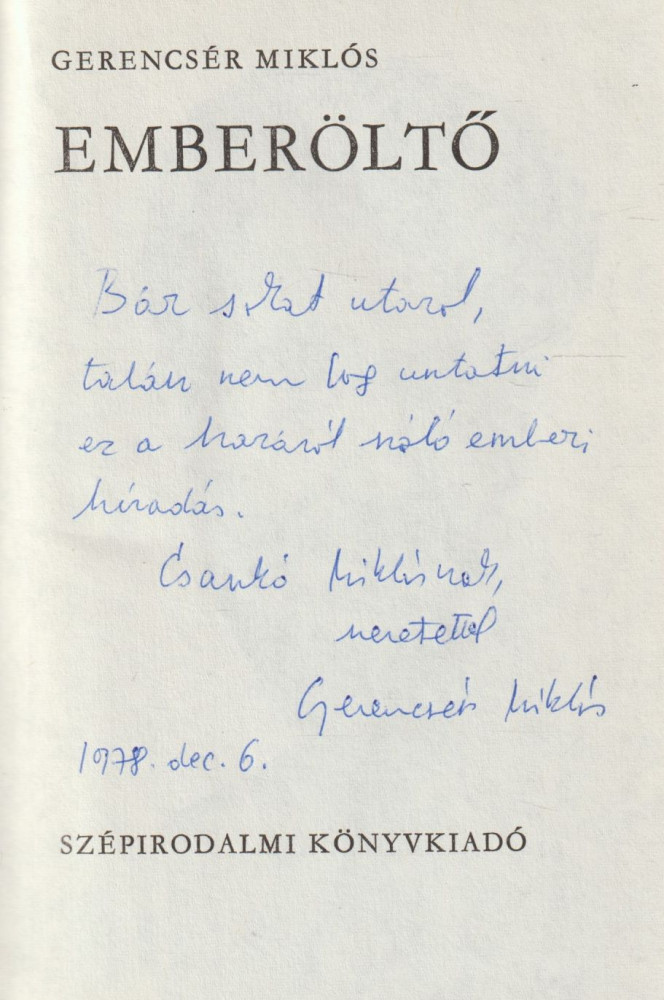 GERENCSÉR MIKLÓS
EMBERÖLTŐ
Bár sokat utazol,
talán nem fog untatni
ez a hazáról szóló emberi
híradás.
Csankó Miklósnak,
szeretettel
Gerencsér Miklós
1978. dec. 6.
SZÉPIRODALMI KÖNYVKIADÓ